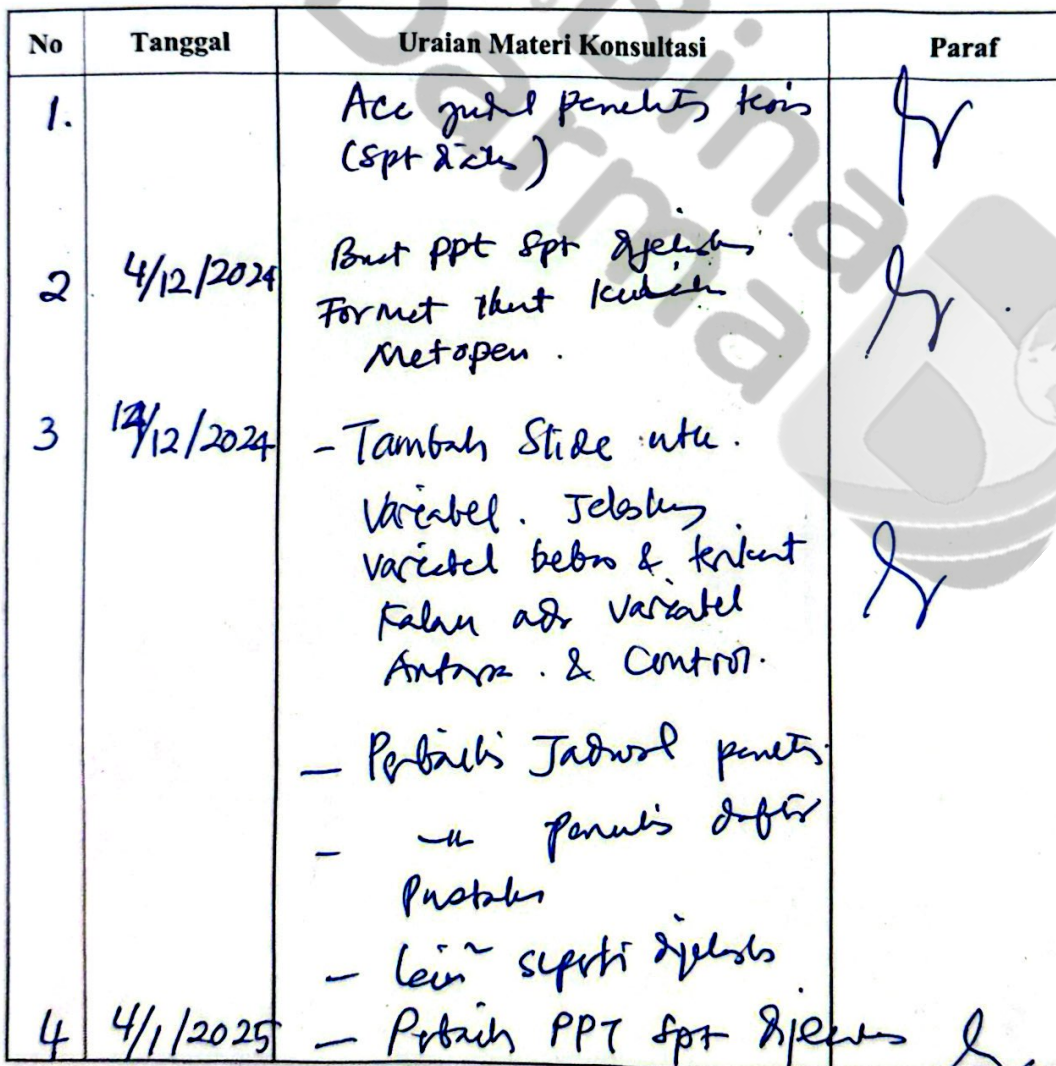 Bina
Darma
No Tanggal Uraian Materi Konsultasi Paraf
1. Acc judul penelits tesis
(spt diatas)
2 4/12/2024 Buat PPT spt dijelaskan
Format lihat kuliah
Metopen.
3 12/12/2024 - Tambah Slide utk.
Variabel. Jelaskan
variabel bebas & terikat
Kalau ada variabel
Antara. & Control.
- Perbaiki Jadwal penelits
- -"- penulis daftar
Pustaka
- lain² seperti dijelaskan
4 4/1/2025 - Perbaiki PPT spt dijelaskan